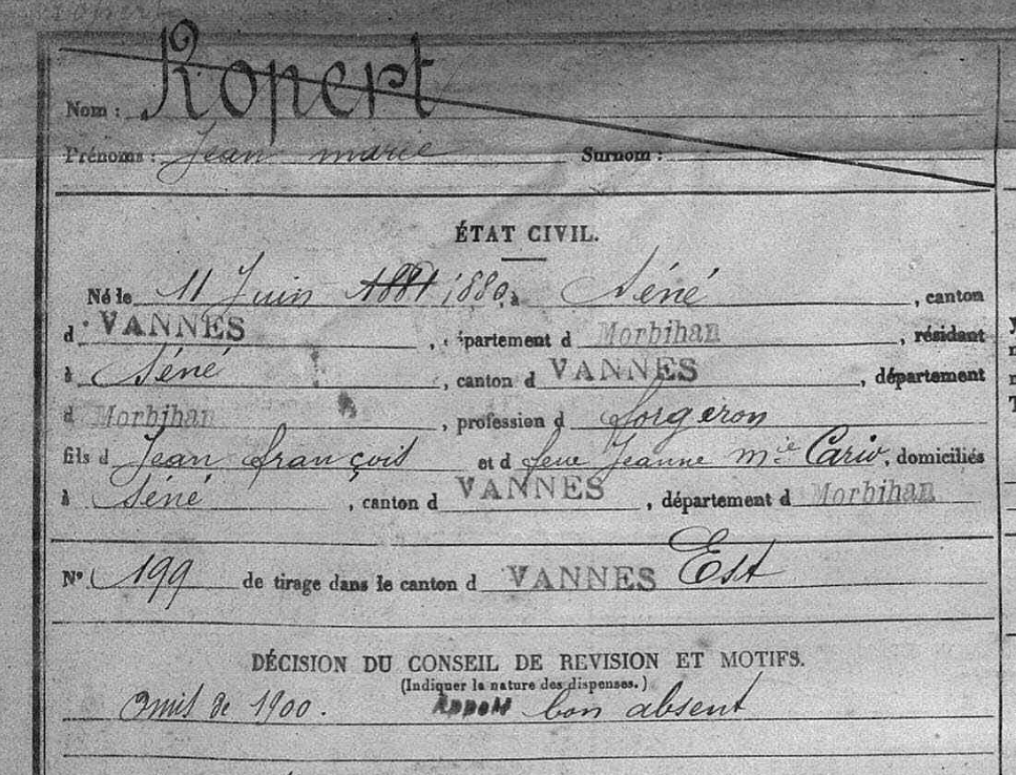 Nom : Ropert
Prénoms : Jean marie Surnom :
ÉTAT CIVIL.
Né le 11 Juin 1881 1880, à Séné, canton
d VANNES, département d Morbihan, résidant
à Séné, canton d VANNES, département
d Morbihan, profession d forgeron
fils d Jean françois et d feue Jeanne m.ie Cario, domiciliés
à Séné, canton d VANNES, département d Morbihan
N° 199 de tirage dans le canton d VANNES Est
DÉCISION DU CONSEIL DE REVISION ET MOTIFS.
(Indiquer la nature des dispenses.)
Omis de 1900. bon absent